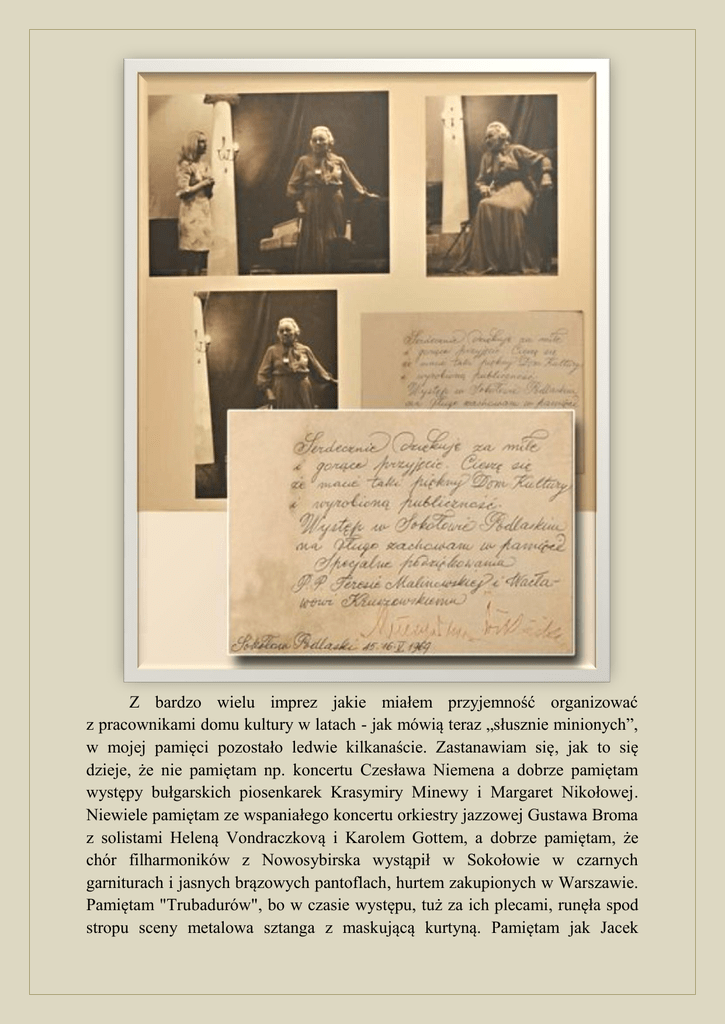 Serdecznie dziękuję za miłe
i gorące przyjęcie. Cieszę się
że macie taki piękny Dom Kultury
i wyrobioną publiczność.
Występ w Sokołowie Podlaskim
na długo zachowam w pamięci
Serdecznie dziękuję za miłe
i gorące przyjęcie. Cieszę się
że macie taki piękny Dom Kultury
i wyrobioną publiczność.
Występ w Sokołowie Podlaskim
na długo zachowam w pamięci
Specjalne podziękowania
P.P. Teresie Malinowskiej i Wacła-
wowi Kruszewskiemu
Sokołów Podlaski 15.16.V.1969
Z bardzo wielu imprez jakie miałem przyjemność organizować
z pracownikami domu kultury w latach - jak mówią teraz „słusznie minionych”,
w mojej pamięci pozostało ledwie kilkanaście. Zastanawiam się, jak to się
dzieje, że nie pamiętam np. koncertu Czesława Niemena a dobrze pamiętam
występy bułgarskich piosenkarek Krasymiry Minewy i Margaret Nikołowej.
Niewiele pamiętam ze wspaniałego koncertu orkiestry jazzowej Gustawa Broma
z solistami Heleną Vondraczkovą i Karolem Gottem, a dobrze pamiętam, że
chór filharmoników z Nowosybirska wystąpił w Sokołowie w czarnych
garniturach i jasnych brązowych pantoflach, hurtem zakupionych w Warszawie.
Pamiętam "Trubadurów", bo w czasie występu, tuż za ich plecami, runęła spod
stropu sceny metalowa sztanga z maskującą kurtyną. Pamiętam jak Jacek